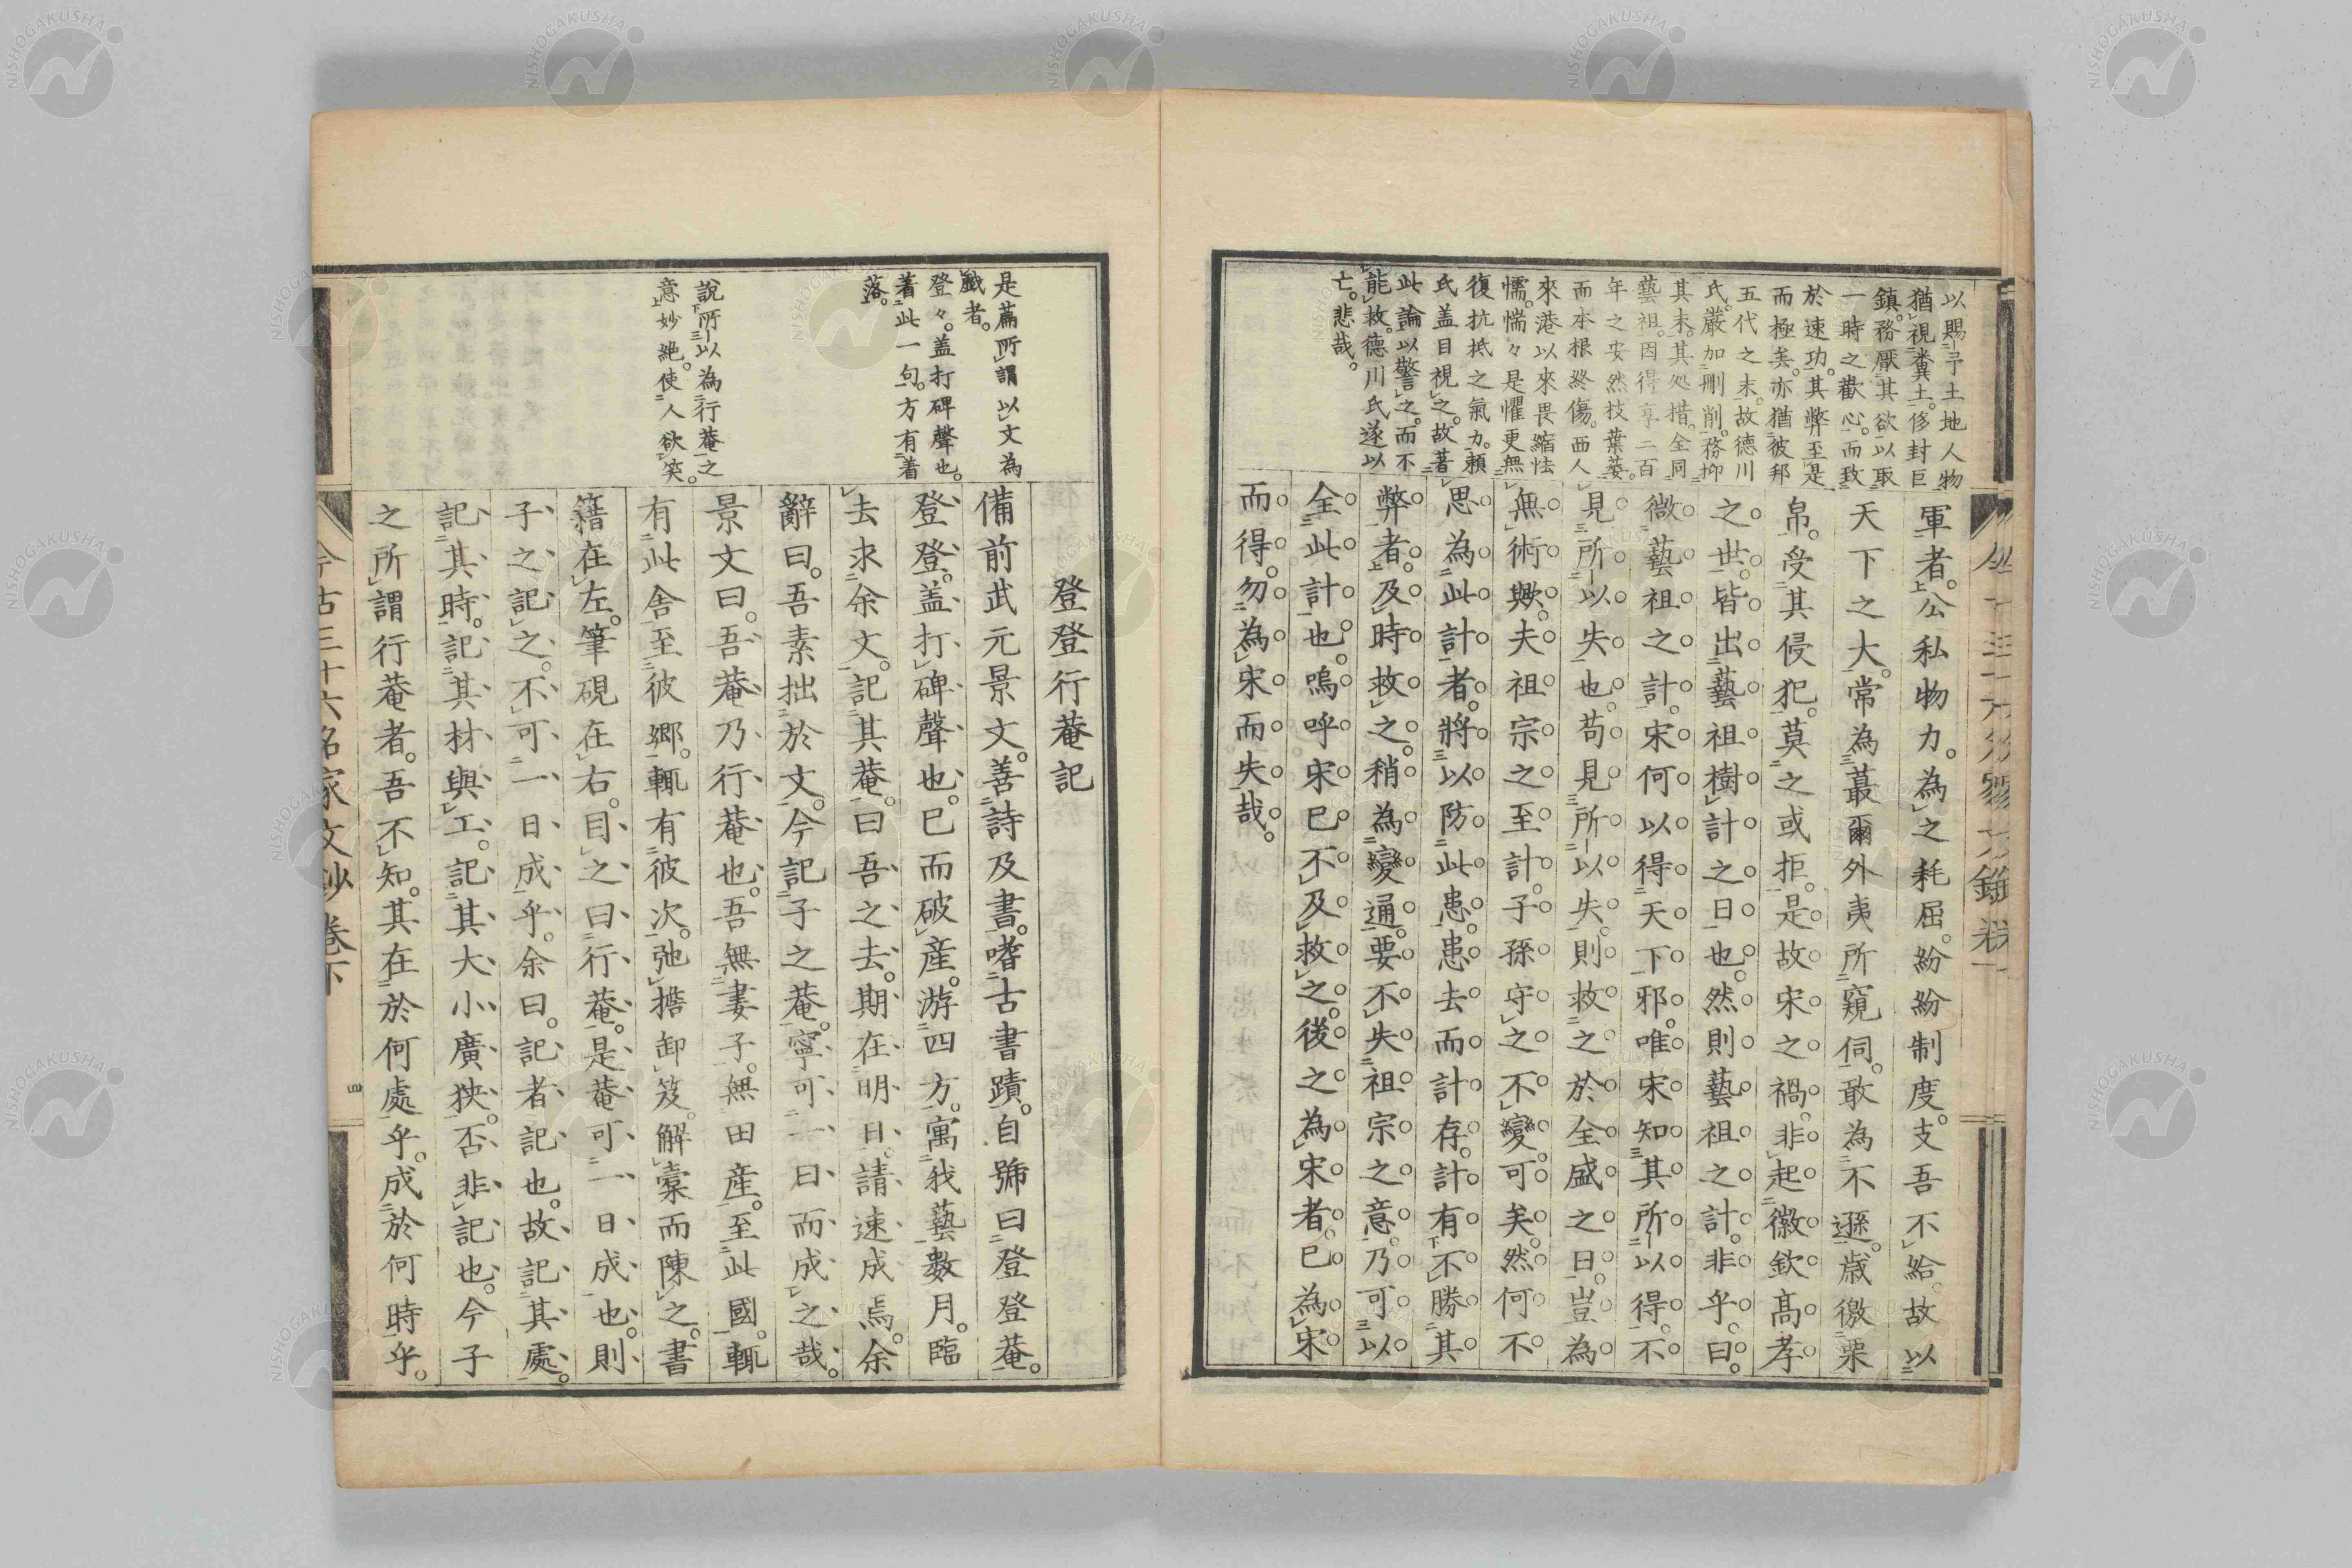 以賜予土地人物
猶視糞土。侈封巨
鎮。務厭其欲以取
一時之歡心。而致
於速功。其弊至是
而極矣。亦猶彼邦
五代之末。故德川
氏。嚴加刪削。務抑
其末。其処措。全同
藝祖。因得享二百
年之安然枝葉萎。
而本根終傷。西人
來港以來畏縮怯
懦。惴々是懼更無
復抗抵之氣力。賴
氏盖目視之。故著
此論以警之。而不
能故。德川氏遂以
亡。悲哉。
軍者。公私物力。為之耗屈。紛紛制度。支吾不給。故以
天下之大。常為蕞爾外夷所窺伺。敢為不遜。歲徼粟
帛。受其侵犯。莫之或拒。是故宋之禍。非起徽欽高孝
之世。皆出藝祖樹計之日也。然則藝祖之計。非乎。曰。
微藝祖之計。宋何以得天下邪。唯宋知其所以得。不
見所以失也。苟見所以失。則救之於全盛之日。豈為
無術歟。夫祖宗之至計。子孫守之不變。可矣。然何不
思為此計者。將以防此患。患去而計存。計有不勝其
弊者。及時救之。稍為變通。要不失祖宗之意。乃可以
全此計也。嗚呼宋已不及救之。後之為宋者。已為宋
而得。勿為宋而失哉。
是篇所謂以文為
戲者。
登々。盖打碑聲也。
著此一句。方有著
落。
說所以為行菴之
意妙絶。使人欲笑。
登登行菴記
備前武元景文。善詩及書。嗜古書蹟。自號曰登登菴。
登登。盖打碑聲也。已而破產。游四方。寓我藝數月。臨
去求余文。記其菴。曰吾之去。期在明日。請速成焉。余
辭曰。吾素拙於文。今記子之菴。寧可一日而成之哉。
景文曰。吾菴乃行菴也。吾無妻子。無田產。至此國。輒
有此舍。至彼鄉。輒有彼次。弛擔卸笈。解橐而陳之。書
籍在左。筆硯在右。目之曰行菴。是菴可一日成也。則
子之記之。不可一日成乎。余曰。記者記也。故記其處。
記其時。記其材與工。記其大小廣狹。否非記也。今子
之所謂行菴者。吾不知。其在於何處乎。成於何時乎。
今古三十六名家文抄卷下
四